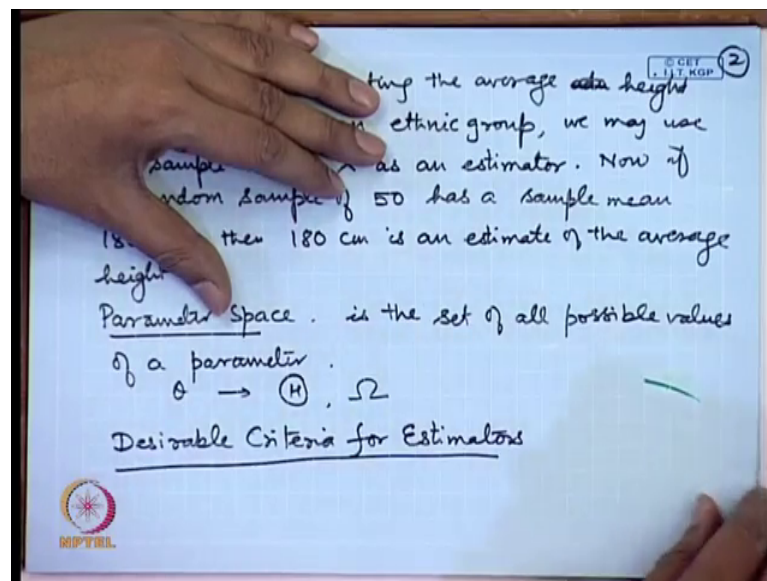 © CET
I.I.T. KGP
2
ting the average height
ethnic group, we may use
sample as an estimator. Now if
ndom sample of 50 has a sample mean
18 then 180 cm is an estimate of the average
height
Parameter Space. is the set of all possible values
of a parameter.
θ → Ⓗ, Ω
Desirable Criteria for Estimators
NPTEL